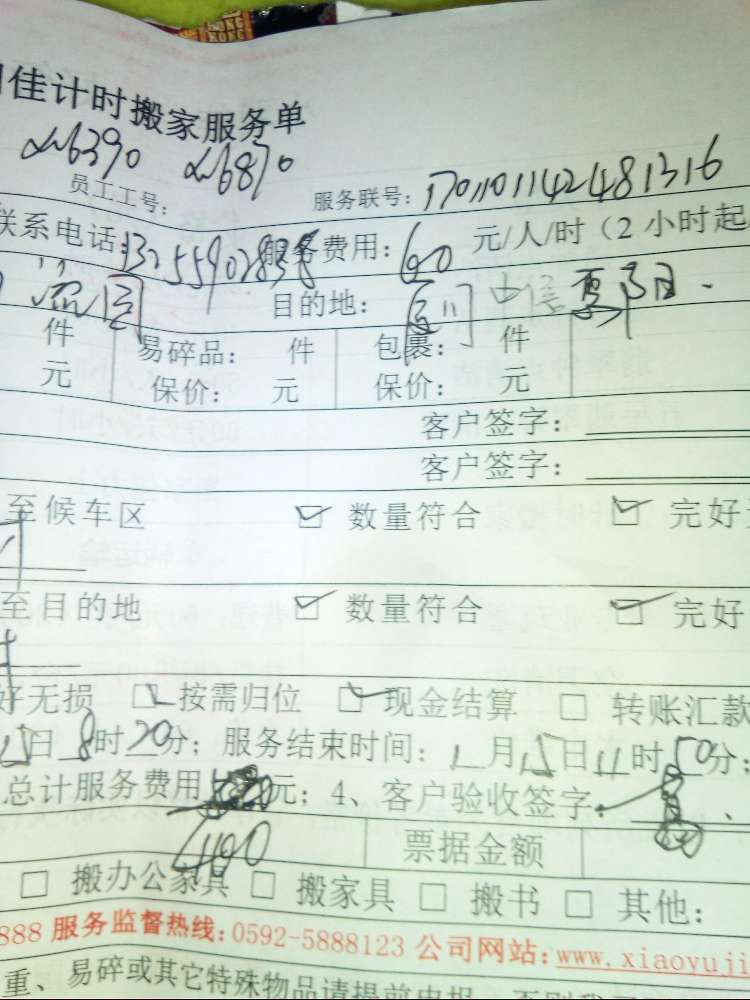 佳计时搬家服务单
员工工号: 6390 6870 服务联号: 1701101142481316
联系电话: 服务费用: 60 元/人/时(2小时起
目的地: 厦门中信
件 易碎品: 件 包裹: 件
元 保价: 元 保价: 元
客户签字:
客户签字:
至候车区 ☑ 数量符合 ☑ 完好
至目的地 ☑ 数量符合 ☑ 完好
好无损 ☑ 按需归位 ☑ 现金结算 □ 转账汇款
15日8时20分; 服务结束时间: 1月15日11时50分;
总计服务费用 元; 4、客户验收签字:
490 票据金额
□ 搬办公家具 □ 搬家具 □ 搬书 □ 其他:
888 服务监督热线: 0592-5888123 公司网站: www.xiaoyuji
重、易碎或其它特殊物品请提前申报